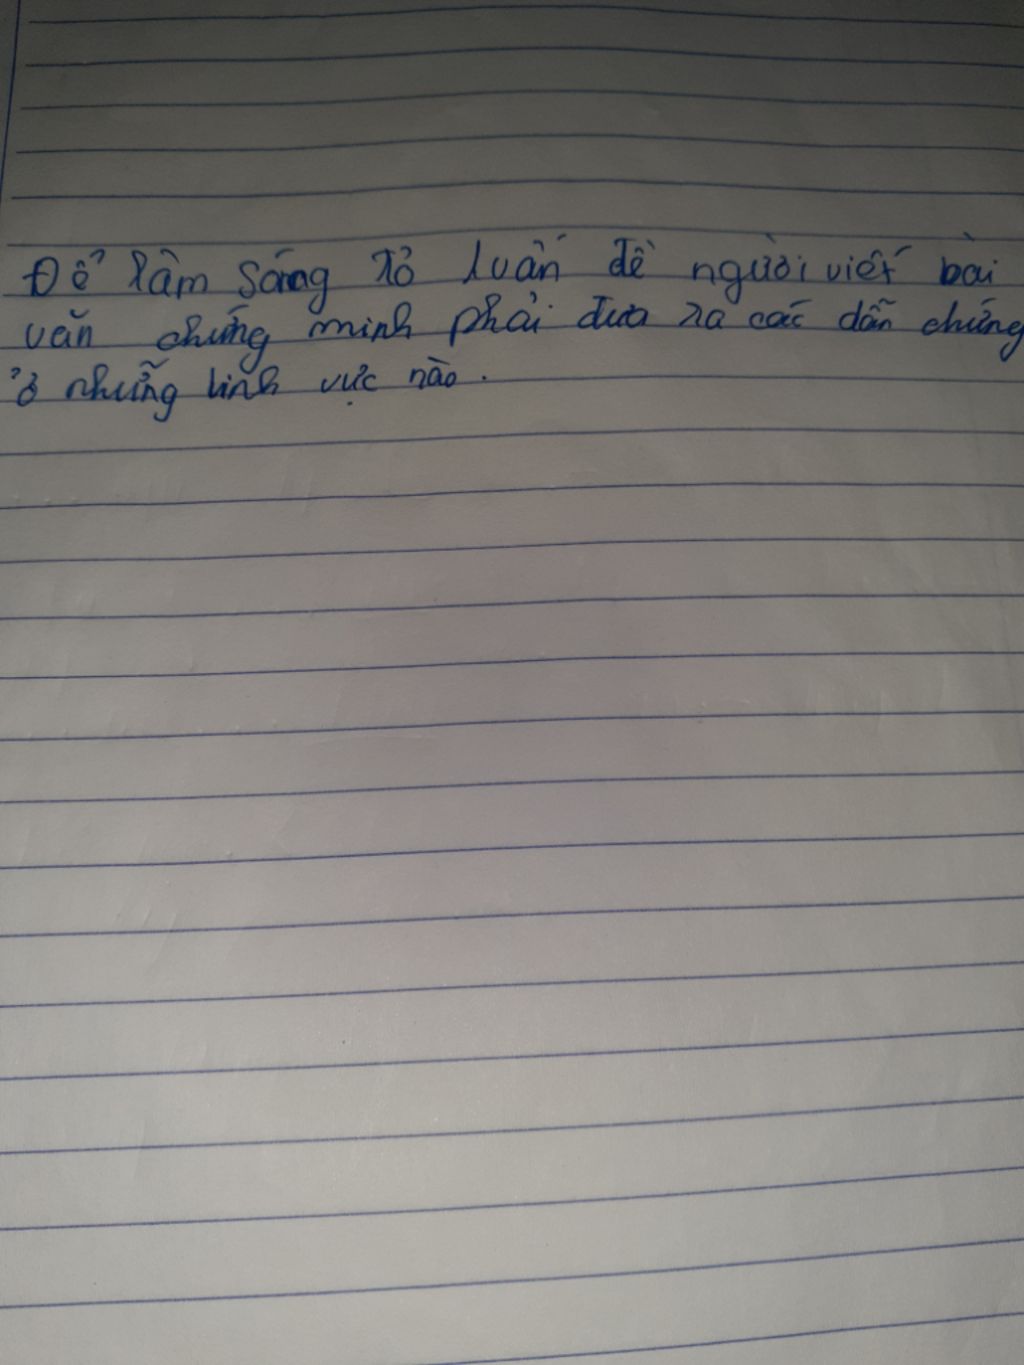 Để làm sáng tỏ luận đề người viết bài
văn chứng minh phải đưa ra các dẫn chứng
ở những lĩnh vực nào.